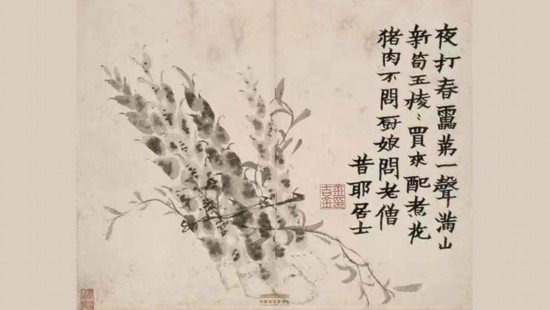 夜打春靁第一聲滿山
新筍玉棱〻買來配煮花
猪肉不問厨娘問老僧
昔耶居士